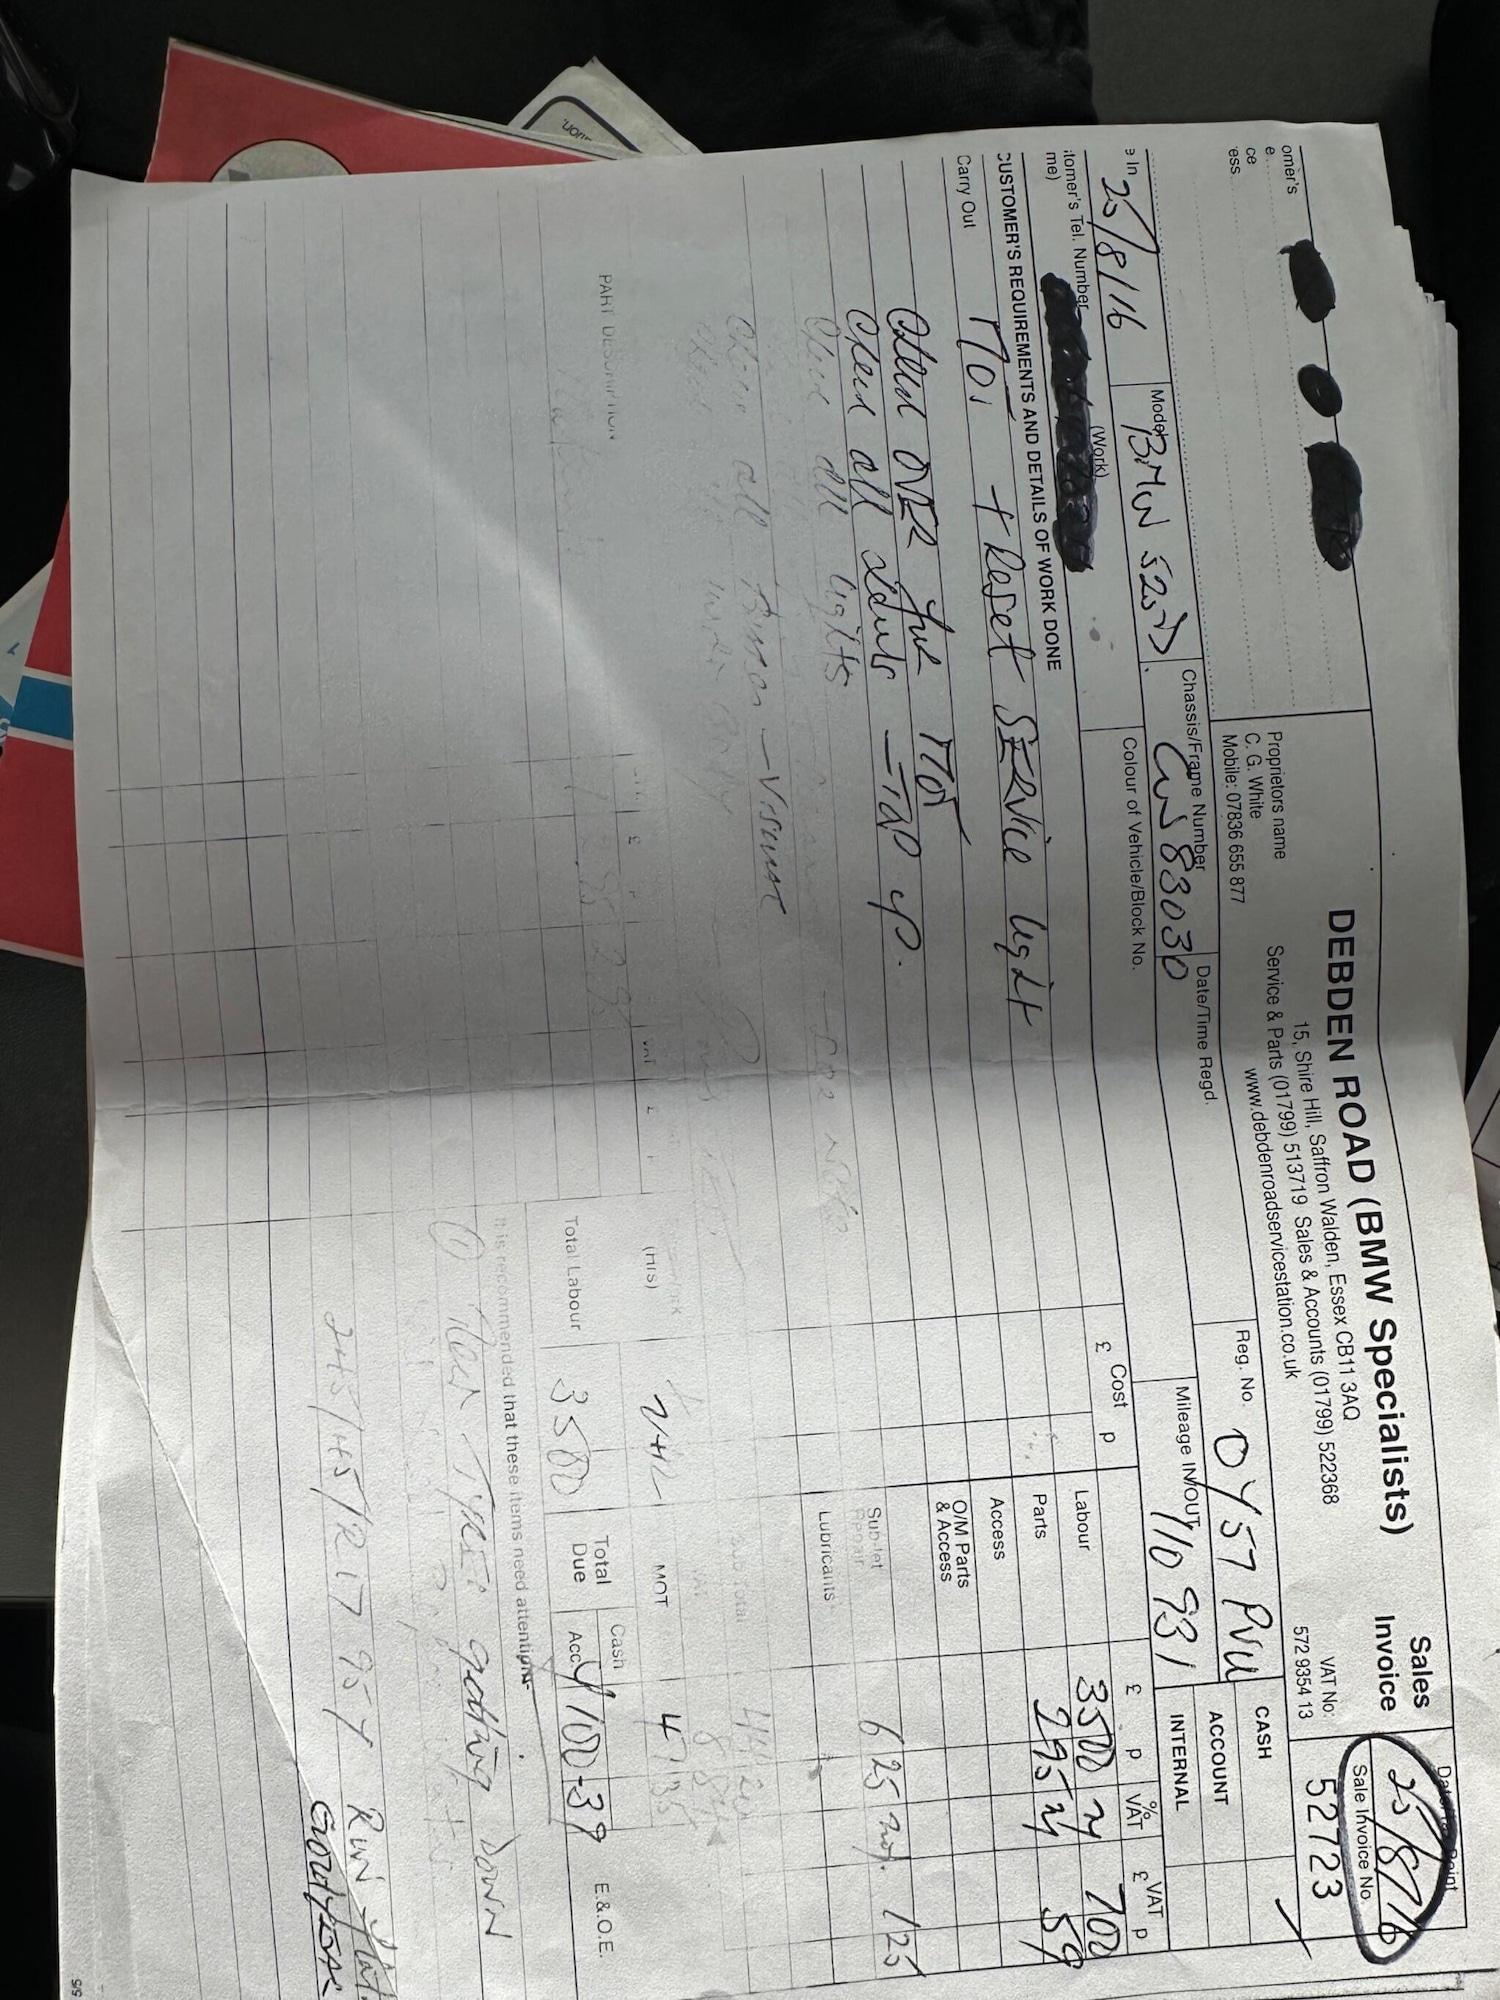 DEBDEN ROAD (BMW Specialists)
15, Shire Hill, Saffron Walden, Essex CB11 3AQ
Service & Parts (01799) 513719 Sales & Accounts (01799) 522368
www.debdenroadservicestation.co.uk
Proprietors name
C. G. White
Mobile: 07836 655 877
Sales
Invoice
VAT No:
572 9354 13
25/8/16
Sale Invoice No.
52723
omer's
e
ce
ess
Reg. No. OY57 PVU
CASH
ACCOUNT
INTERNAL
e In 25/8/16
Model BMW 520D
Chassis/Frame Number CW83030
Date/Time Regd.
Mileage IN/OUT 110 931
tomer's Tel. Number
me)
(Work)
Colour of Vehicle/Block No.
CUSTOMER'S REQUIREMENTS AND DETAILS OF WORK DONE
Cost
£ p
£ p
% VAT
VAT
£ p
Carry Out MOT + Reset SERVICE light
Labour 3500 700
Parts 295 59
Access
O/M Parts
& Access
Check OVER for MOT
Check all levels - TOP UP.
Sub-let
Repair 6 25 125
Check all lights
Lubricants
Sub Total
Check all - Visual
VAT
PART DESCRIPTION
£ p
VAT
(Hrs)
MOT 47
Total Labour 3500
Total Due
Cash
Acc 100-39
E.&O.E.
It is recommended that these items need attention
① Rear Tyres getting DOWN
245/45/R17 95Y Run flat
Goodyear
5/5